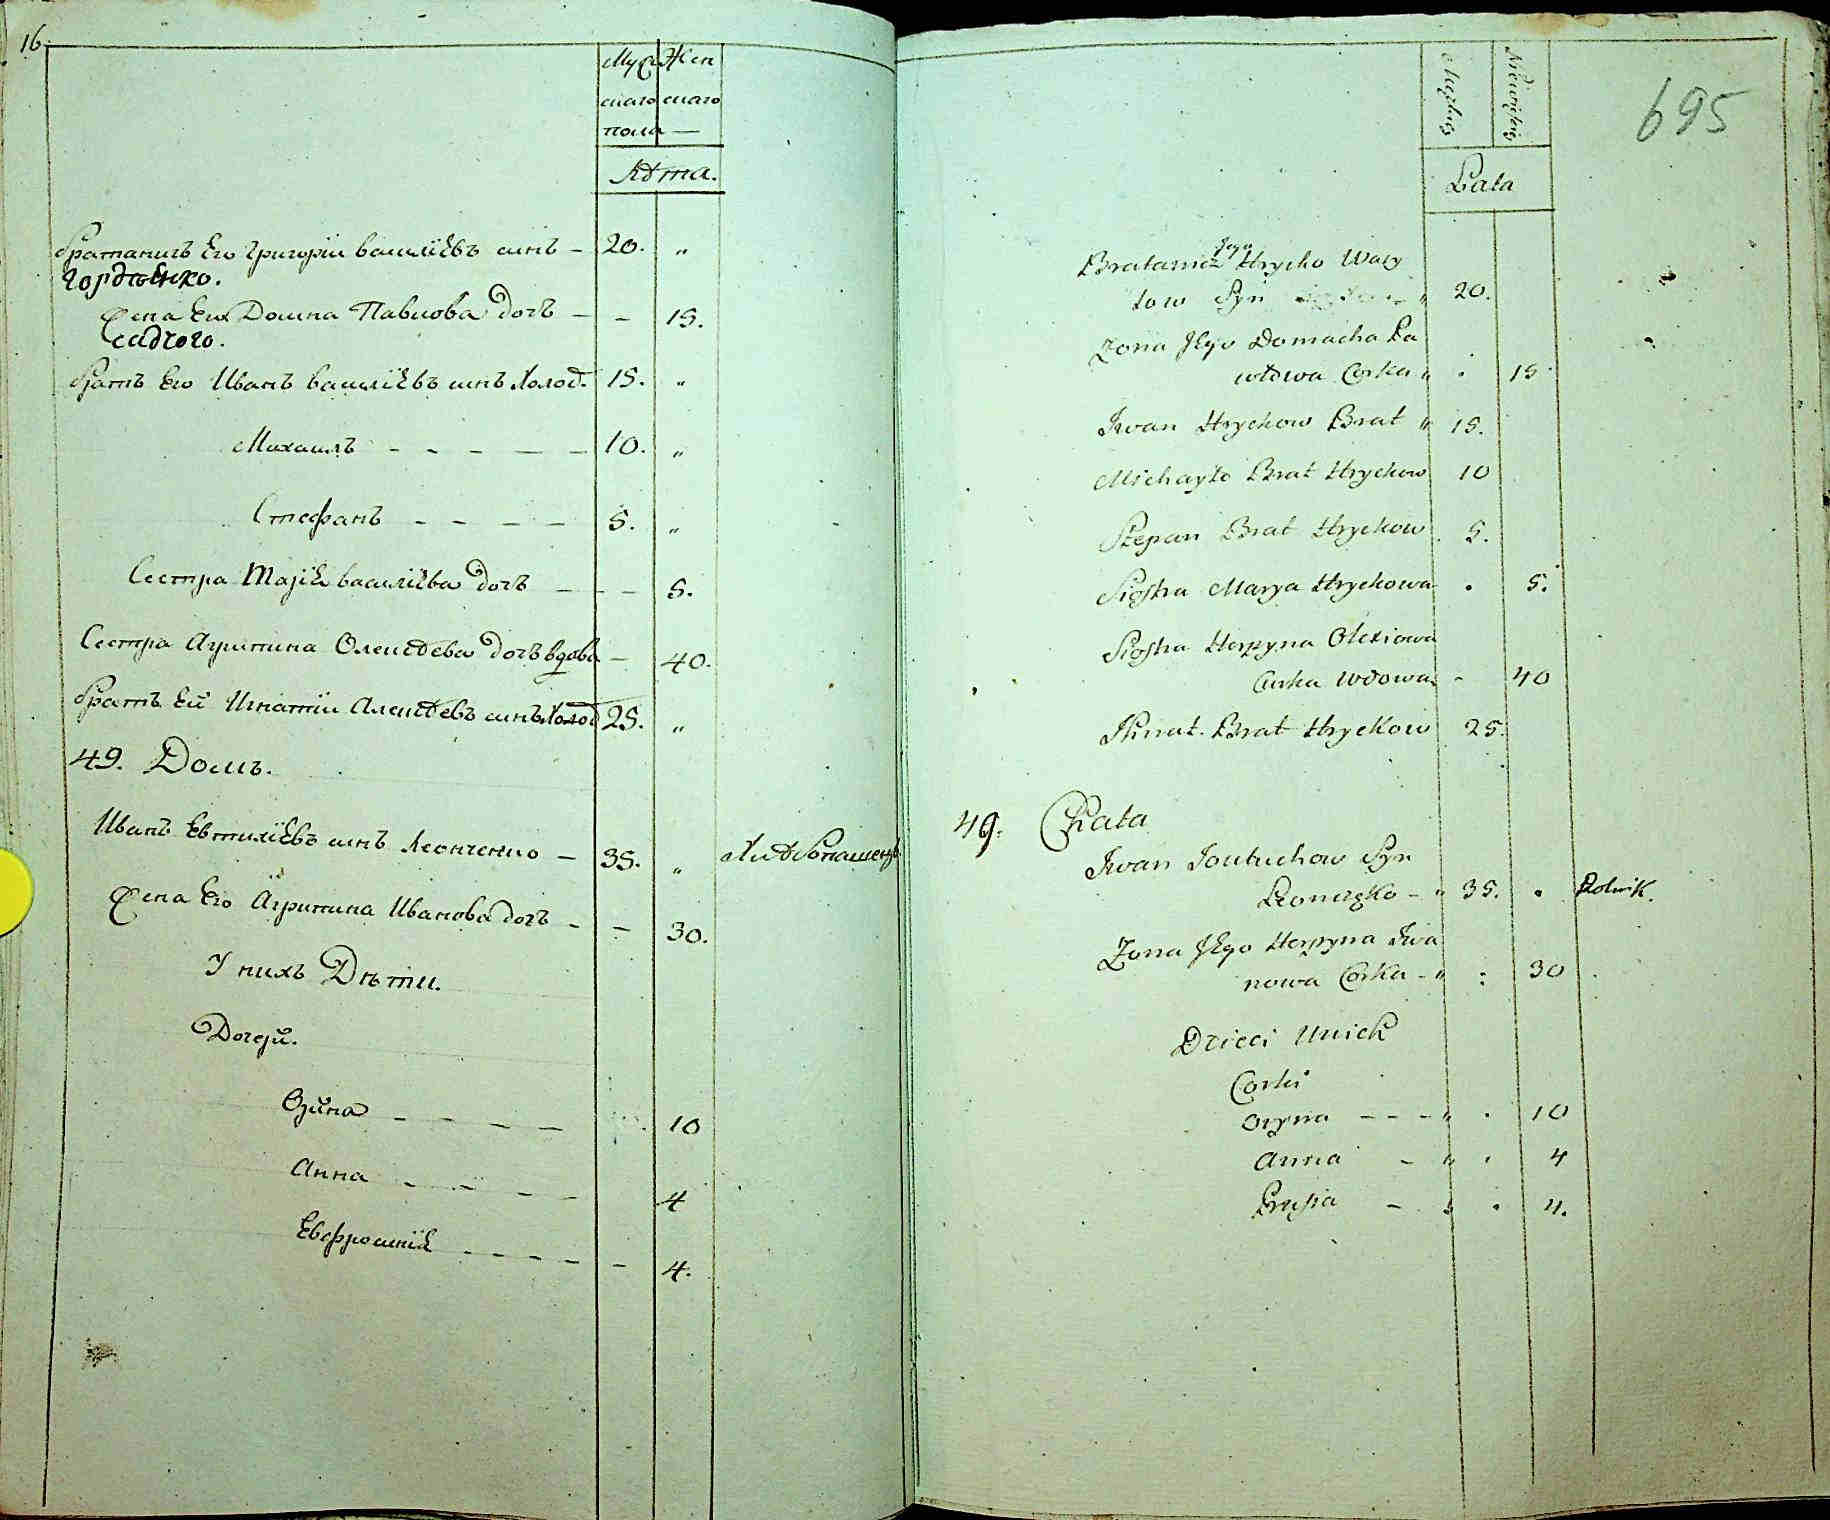 16.
Муже Жен
скаго скаго
пола —
Лѣта.
братаничъ Его Григорїи василїевъ синъ — 20. „
Гордѣенко.
Жена Его Домна Павлова дочъ — — 15.
садчого.
братъ Его Иванъ василїевъ синъ холос. 15. „
Михаилъ — — — — — 10. „
Стефанъ — — — — 5. „
Сестра Марїя василїева дочъ — — — 5.
Сестра Агрипина Олексѣева дочъ вдова — 40.
братъ Ей Игнатїи Алексѣевъ синъ холос 25. „
49. Домъ.
Иванъ Евтихїевъ синъ Леонченко — 35. „ Хлѣбопашецъ
Жена Его Агрипина Иванова дочъ — — 30.
У нихъ Дѣти.
Дочери.
Орина — — — — — 10
Анна — — — — 4
Евфросинїя — — — — — 4.
695
Męzkiey Niewieskiey
Lata
Jego
Bratanicz Hrycko Wasy
low Syn „ 20.
Zona Jego Domacha Pa
wlowa Corka „ . 15
Iwan Hryckow Brat „ 15.
Michayło Brat Hryckow 10
Stepan Brat Hryckow 5.
Siostra Marya Hryckowa . 5.
Siostra Horpyna Olexiowa
Corka Wdowa - 40
Ihnat Brat Hryckow 25.
49. Chata
Iwan Jowtuchow Syn
Leonczęko - „ 35. . Rolnik.
Zona Jego Horpyna Iwa
nowa Corka - „ : 30
Dzieci Unich
Corki
Oryna - - - „ . 10
Anna - „ . 4
Prusia - „ . 4.